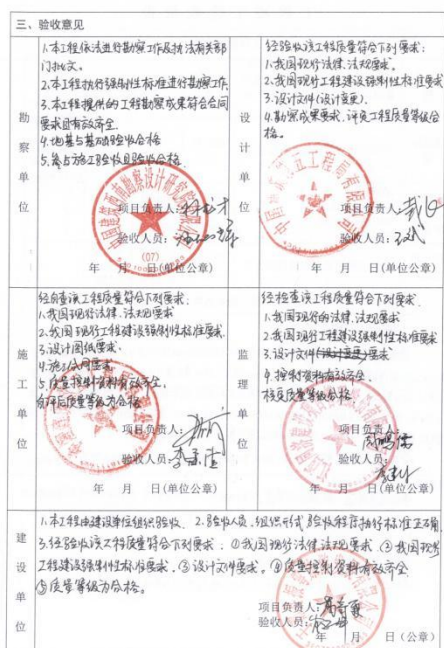 三、验收意见
勘察单位
1.本工程依法进行勘察工作及执法有关部
门批文。
2.本工程执行强制性标准进行勘察工作
3.本工程提供的工程勘察成果符合合同
要求且有效齐全
4.地基与基础验收合格
5.参与施工验收且验收合格
项目负责人:
验收人员:
年 月 日(单位公章)
设计单位
经验收该工程质量符合下列要求:
1.我国现行法律.法规要求。
2.我国现行工程建设强制性标准要求
3.设计文件(设计变更).
4.勘察成果要求.评定工程质量等级合
格。
项目负责人:
验收人员:
年 月 日(单位公章)
施工单位
经自查该工程质量符合下列要求:
1.我国现行法律.法规要求
2.我国现行工程建设强制性标准要求
3.设计图纸要求.
4.施工合同要求
5.质量控制资料有效齐全.
自评后质量等级为合格
项目负责人:
验收人员:
年 月 日(单位公章)
监理单位
经检查该工程质量符合下列要求:
1.我国现行的法律.法规要求
2.我国现行工程建设强制性标准要求
3.设计文件(设计变更)要求
4.控制资料有效齐全.
核定质量等级合格
项目负责人:
验收人员:
年 月 日(单位公章)
建设单位
1.本工程由建设单位组织验收. 2.验收人员.组织形式.验收程序.执行标准正确
3.经验收该工程质量符合下列要求: ①我国现行法律法规要求.②我国现行
工程建设强制性标准要求.③设计文件要求。④质量控制资料有效齐全
⑤质量等级为合格。
项目负责人:
验收人员:
年 月 日(公章)
(07)